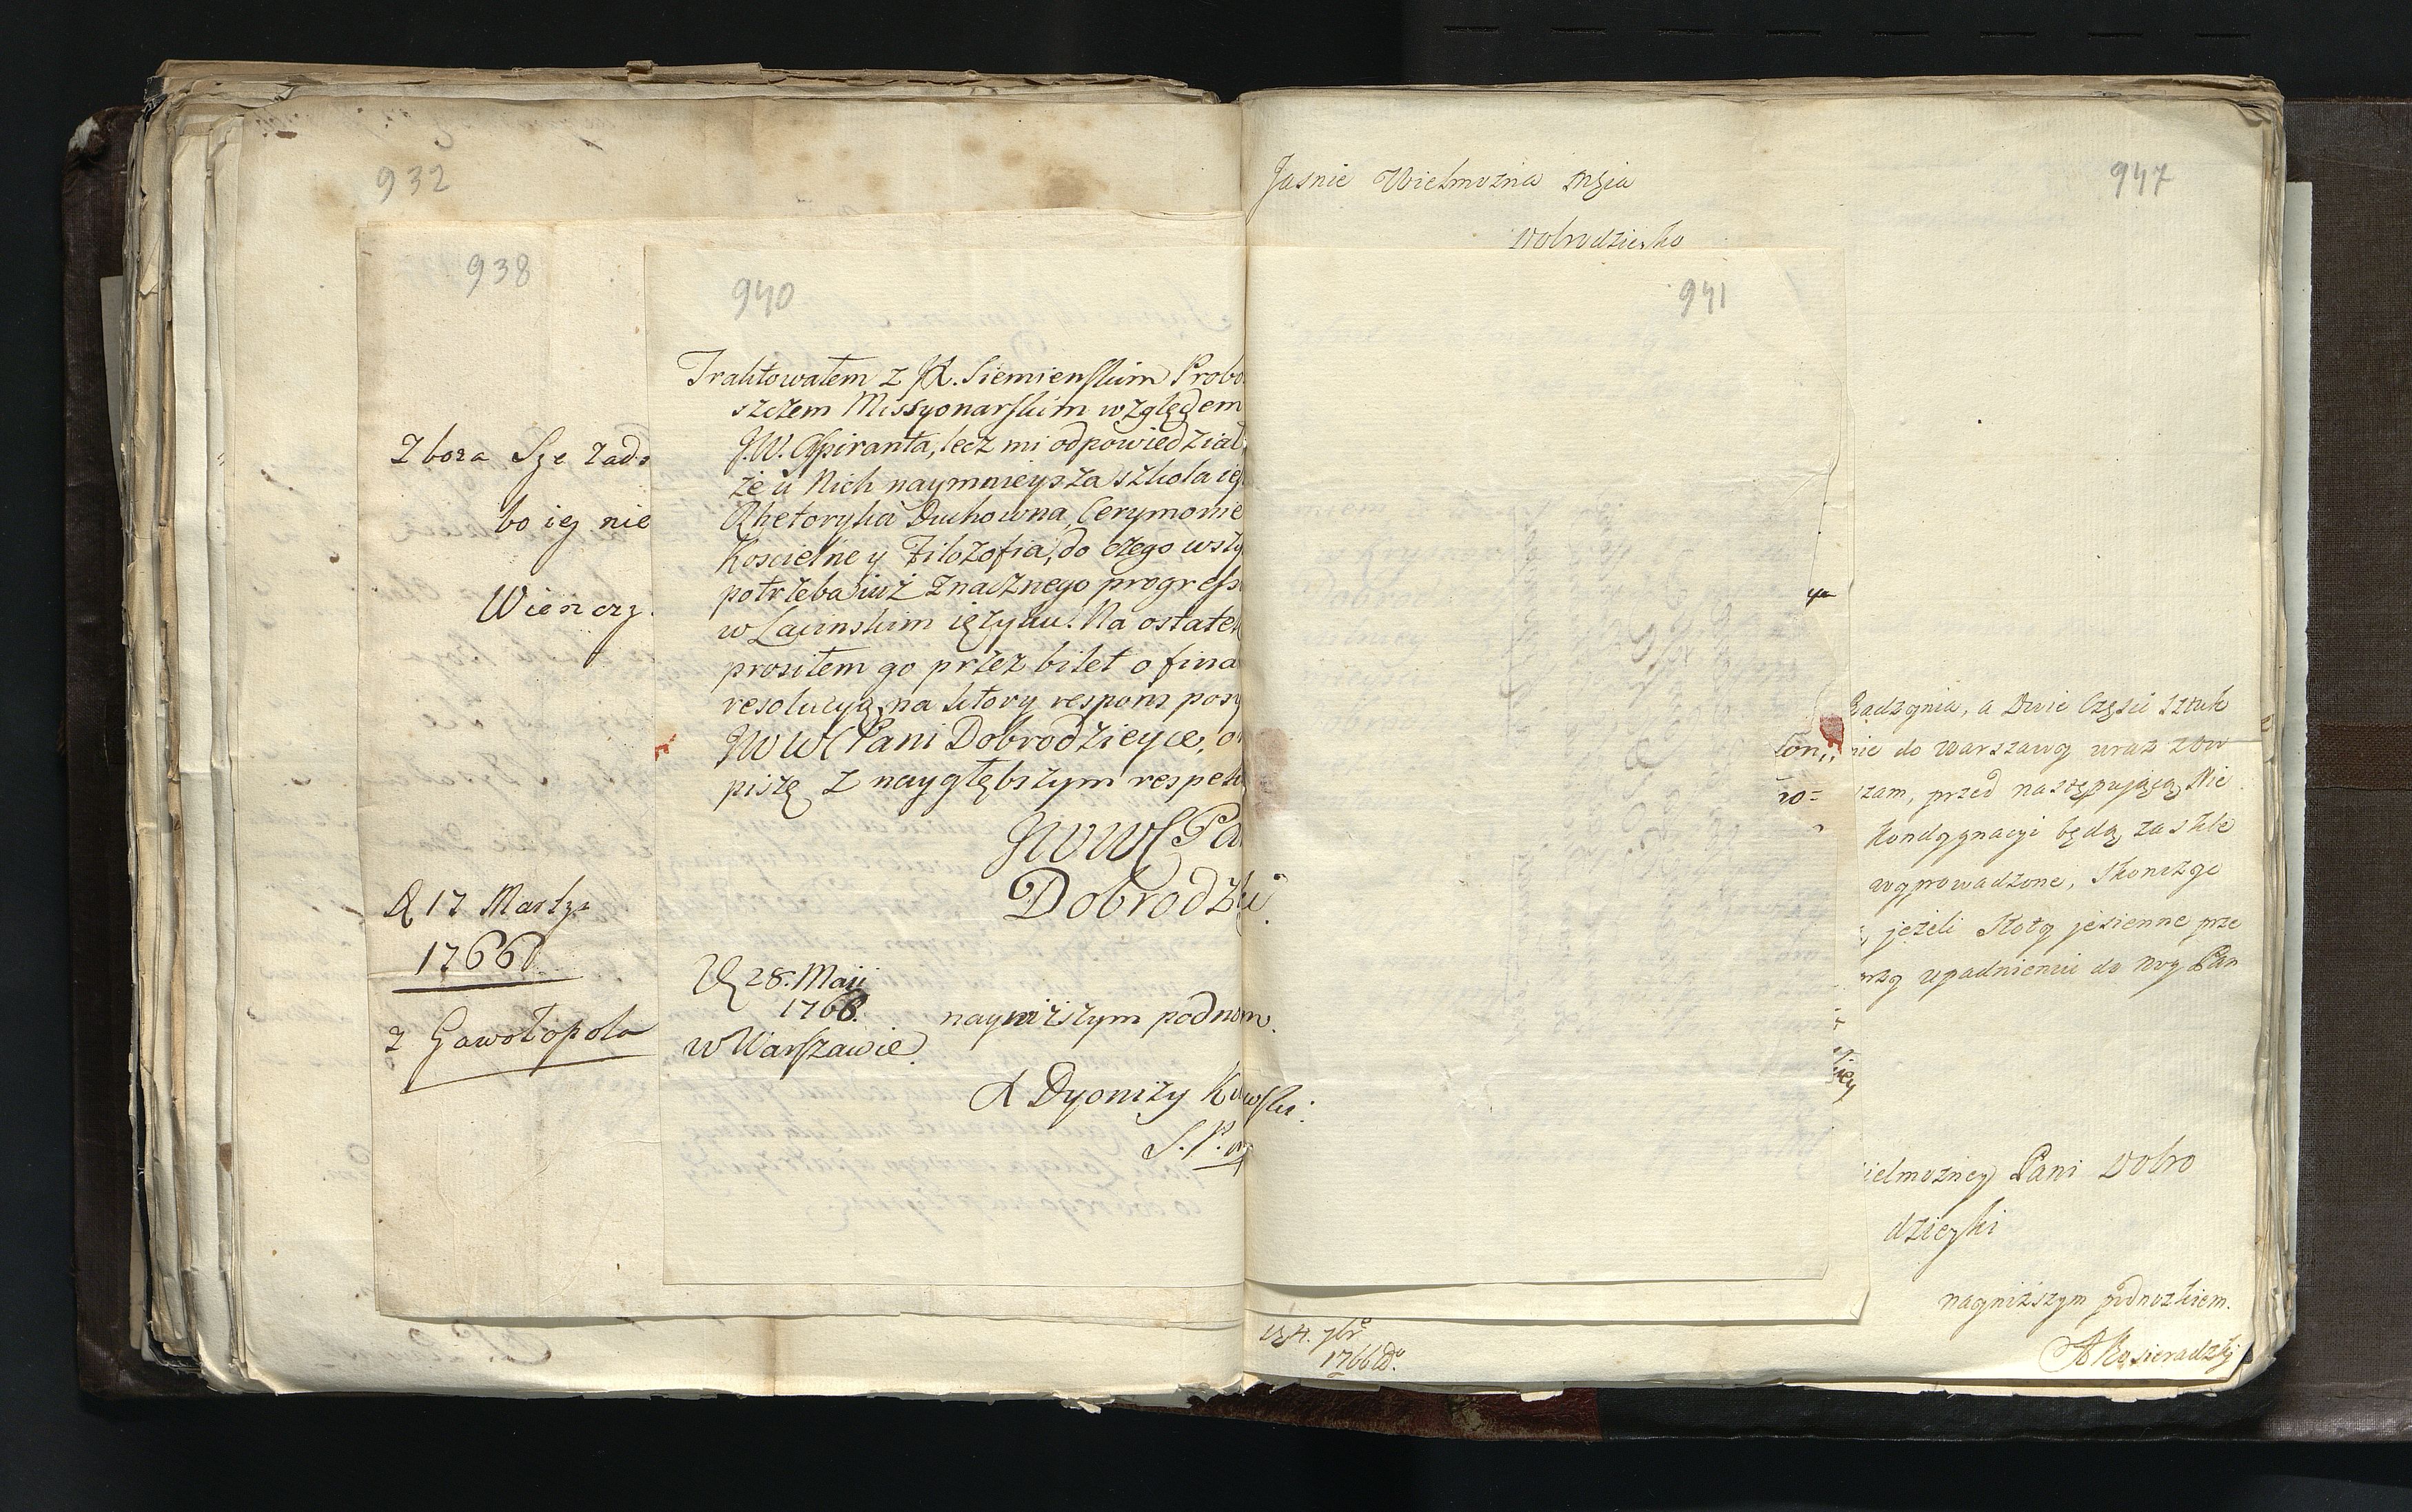 932
938
Zboża Sze
bo iey nie
D 17 Martz
1766
z Gawołopola
940
Traktowałem z JX. Siemieńskim Probo
szczem Missyonarskim względem
J.W. Aspiranta, lecz mi odpowiedział,
że u Nich naymnieysza szkoła ie
Rhetoryka Duchowna, Cerymonie
Koscielne y Filozofia, do czego
potrzeba iuż znacznego progress
w Łacinskim ięzyku. Na ostatek
prosiłem go przez bilet o fina
resolucyą, na ktory respons posy
JWWC Pani Dobrodzieyce, 
piszę z naygłębszym respek
JWWC Pa
Dobrodzki
D 28. Maii
1768.
w Warszawie.
nayniższym podnom.
X Dyonizy
S.P.
Jasnie Wielmozna Mgia
Dobrodzieyko
947
941
Radzynia, a Dwie Części sztuk
nie do Warszawy wraz
szam, przed następującą Nie
Kondygnacyi będą za
wyprowadzone, skończy
jeżeli Słoty jesienne prze
upadnieniu do Nog Pan
ielmozney Pani Dobro
dzieyki
nayniższym podnozkiem.
A Kosieradzky
D 4. 7br
1766